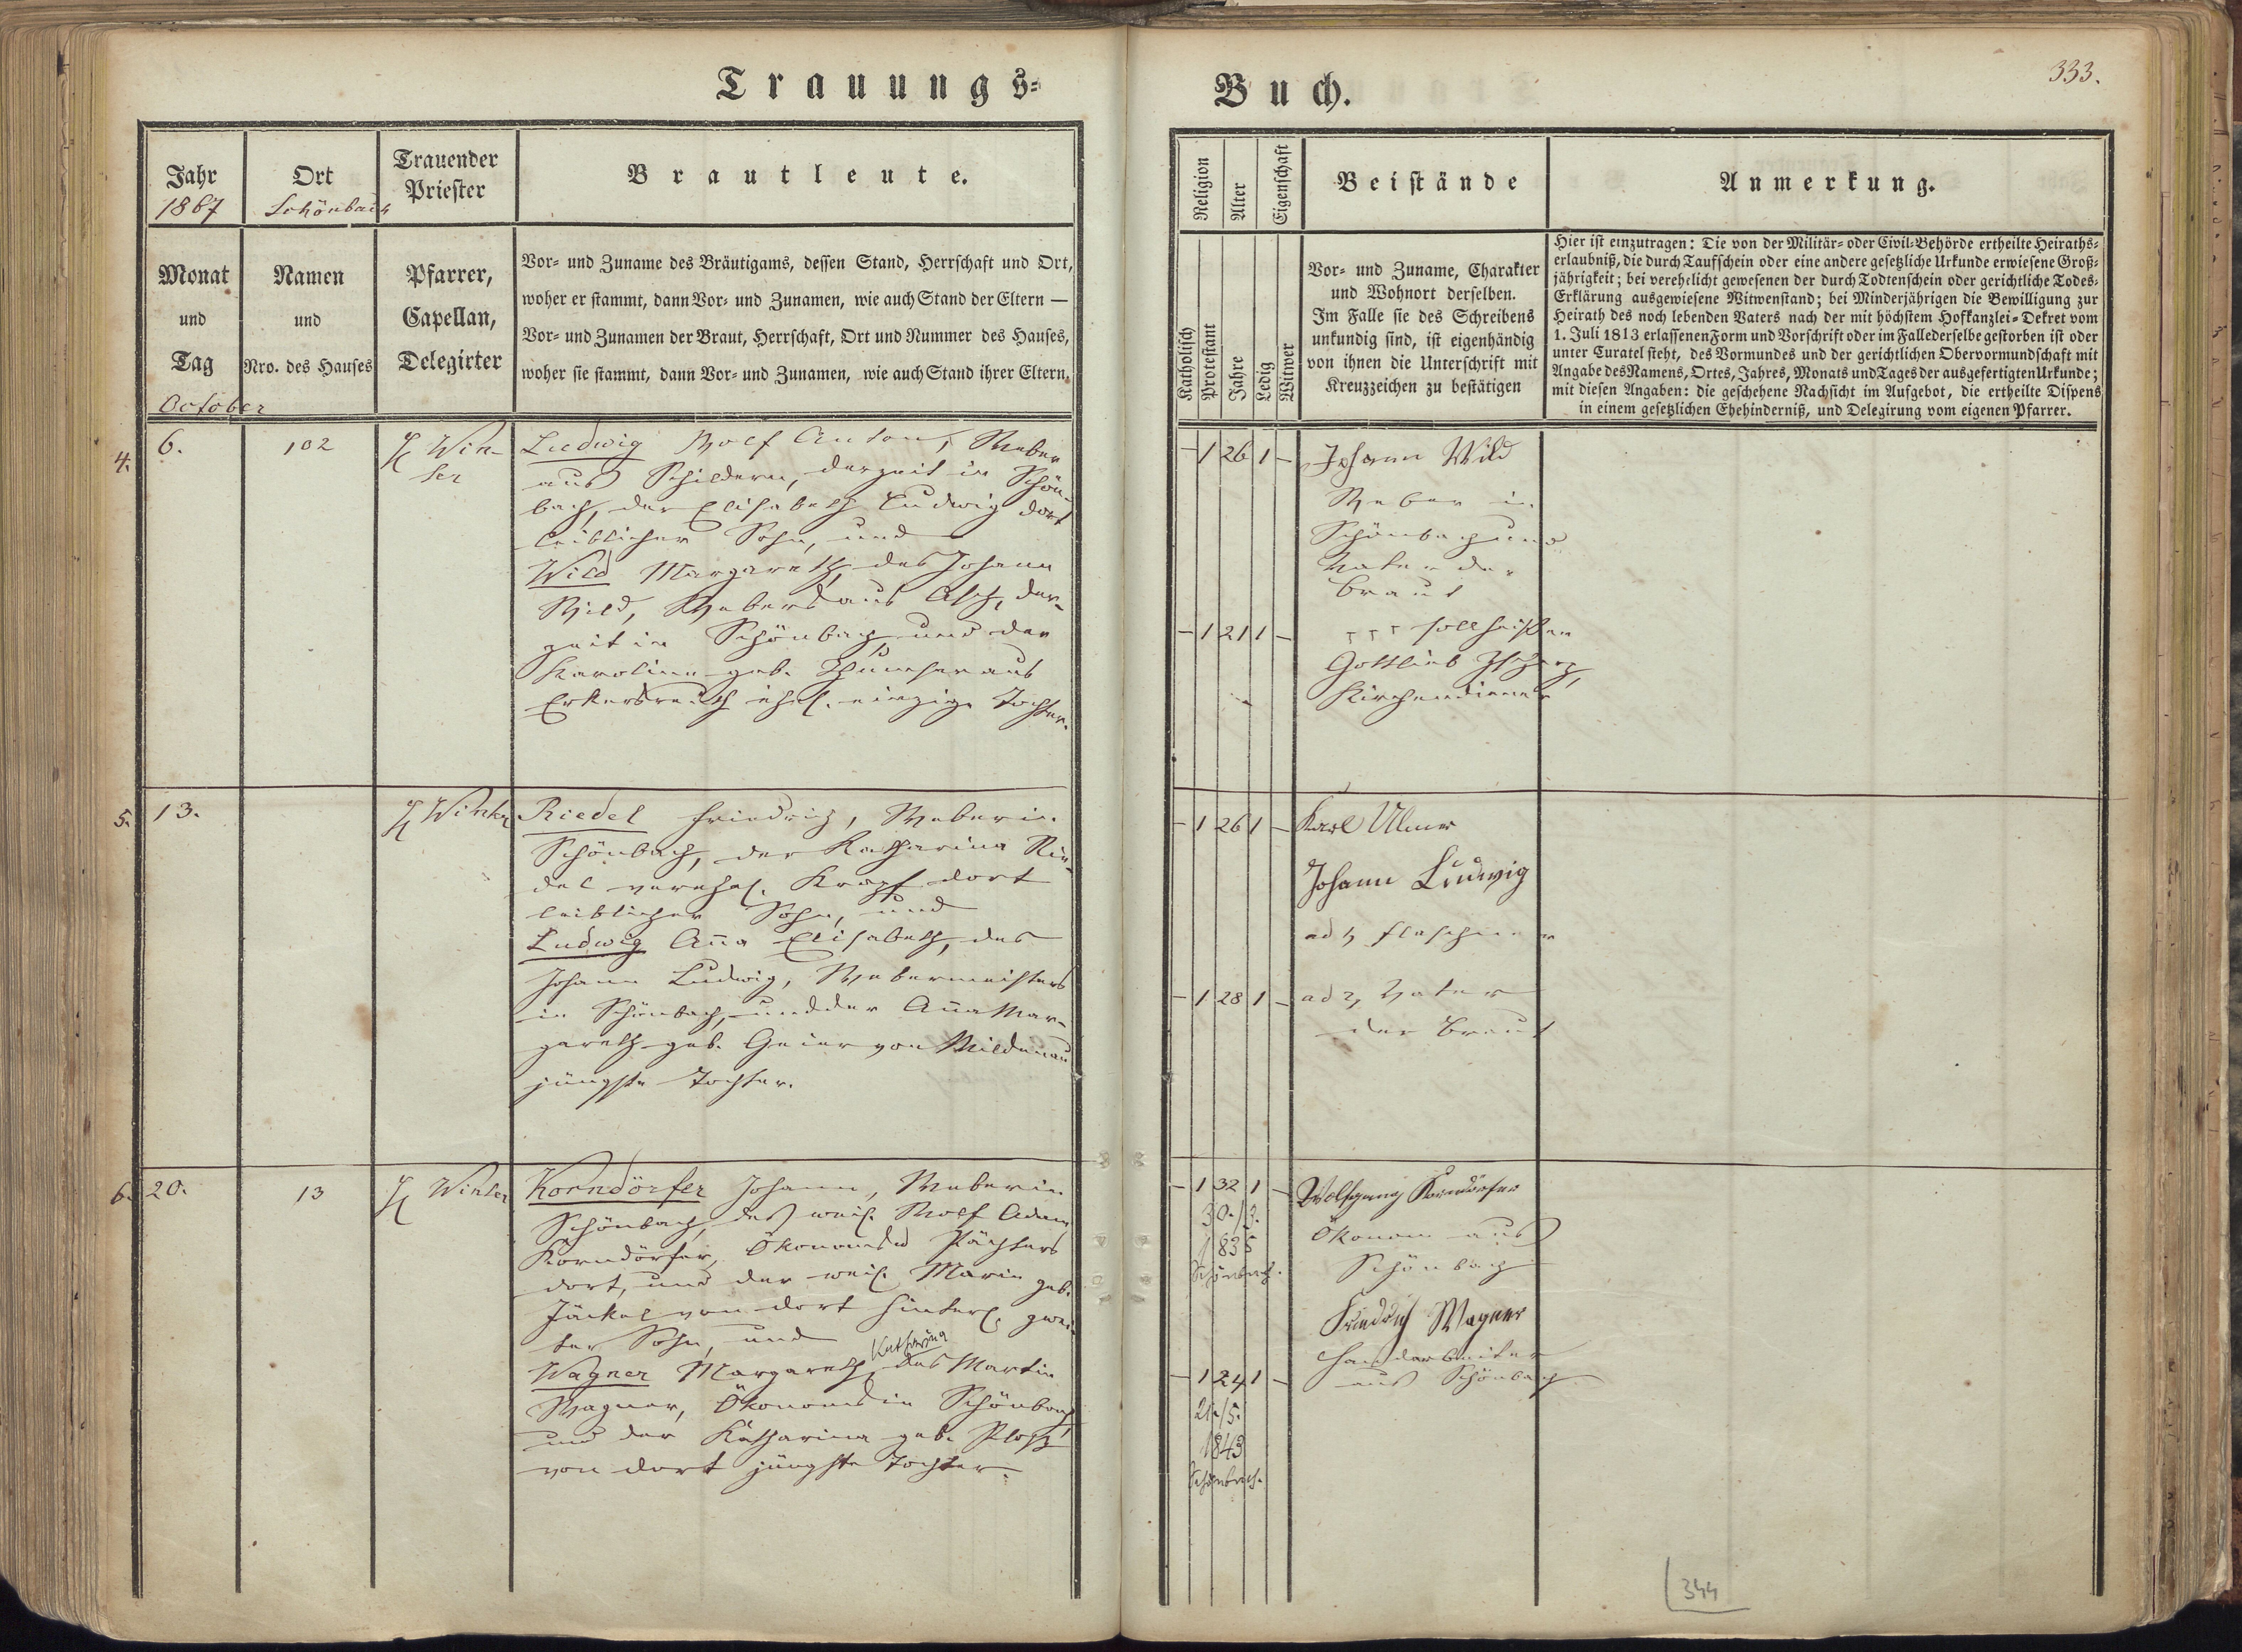 Trauungs-
Buch.
333.
Jahr
1867
Ort
Schönbach
Trauender
Priester
Brautleute.
Monat
und
Tag
October
Namen
und
Nro. des Hauses
Pfarrer,
Capellan,
Delegirter
Vor- und Zuname des Bräutigams, dessen Stand, Herrschaft und Ort,
woher er stammt, dann Vor- und Zunamen, wie auch Stand der Eltern —
Vor- und Zunamen der Braut, Herrschaft, Ort und Nummer des Hauses,
woher sie stammt, dann Vor- und Zunamen, wie auch Stand ihrer Eltern.
Religion
Alter
Eigenschaft
Beistände
Anmerkung.
Katholisch
Protestant
Jahre
Ledig
Witwer
Vor- und Zuname, Charakter
und Wohnort derselben.
Im Falle sie des Schreibens
unkundig sind, ist eigenhändig
von ihnen die Unterschrift mit
Kreuzzeichen zu bestätigen
Hier ist einzutragen: Die von der Militär- oder Civil-Behörde ertheilte Heiraths-
erlaubniß, die durch Taufschein oder eine andere gesetzliche Urkunde erwiesene Groß-
jährigkeit; bei verehelicht gewesenen der durch Todtenschein oder gerichtliche Todes-
Erklärung ausgewiesene Witwenstand; bei Minderjährigen die Bewilligung zur
Heirath des noch lebenden Vaters nach der mit höchstem Hofkanzlei-Dekret vom
1. Juli 1813 erlassenen Form und Vorschrift oder im Falle derselbe gestorben ist oder
unter Curatel steht, des Vormundes und der gerichtlichen Obervormundschaft mit
Angabe des Namens, Ortes, Jahres, Monats und Tages der ausgefertigten Urkunde;
mit diesen Angaben: die geschehene Nachsicht im Aufgebot, die ertheilte Dispens
in einem gesetzlichen Ehehinderniß, und Delegirung vom eigenen Pfarrer.
4. 6. 102 Win-
ter
Ludwig Wolf Anton, Weber
aus Schildern, derzeit in Schön-
bach, der Elisabeth Ludwig dort
leiblicher Sohn, und
Wild Margareth, des Johann
Wild, Webers aus Asch, der-
zeit in Schönbach, und der
Karoline geb. aus
Erkersreuth ehel. einzige Tochter.
– 1 26 1 –
Johann Wild
Weber in
Schönbach und
Vater der
Braut
– 1 21 1 –
soll heißen
Gottlieb
Kirchendiener
5. 13. Winter
Riedel Friedrich, Weber in
Schönbach, der Katharina Rie-
del verehel. Krapf dort
leiblicher Sohn, und
Ludwig Anna Elisabeth, des
Johann Ludwig, Webermeisters
in Schönbach, und der Anna Mar-
gareth geb. Geier von Mildenau
jüngste Tochter.
– 1 26 1 –
Karl Ulmer
Johann Ludwig
ad 1, Flaschner
– 1 28 1 –
ad 2, Vater
der Braut
6. 20. 13 Winter
Korndörfer Johann, Weber in
Schönbach, des weil. Wolf Adam
Korndörfer, Ökonoms u. Pächters
dort, und der weil. Marie geb.
Jäckel von dort hinterl. zwei-
ter Sohn, und
Katharina
Wagner Margareth, des Martin
Wagner, Ökonoms in Schönbach,
und der Katharina geb. Ploß
von dort jüngste Tochter.
– 1 32 1 –
30./3.
1835
Schönbach.
Wolfgang Korndörfer
Ökonom aus
Schönbach
Friedrich Wagner
Handarbeiter
aus Schönbach
– 1 24 1 –
21./5.
1843
Schönbach.
344